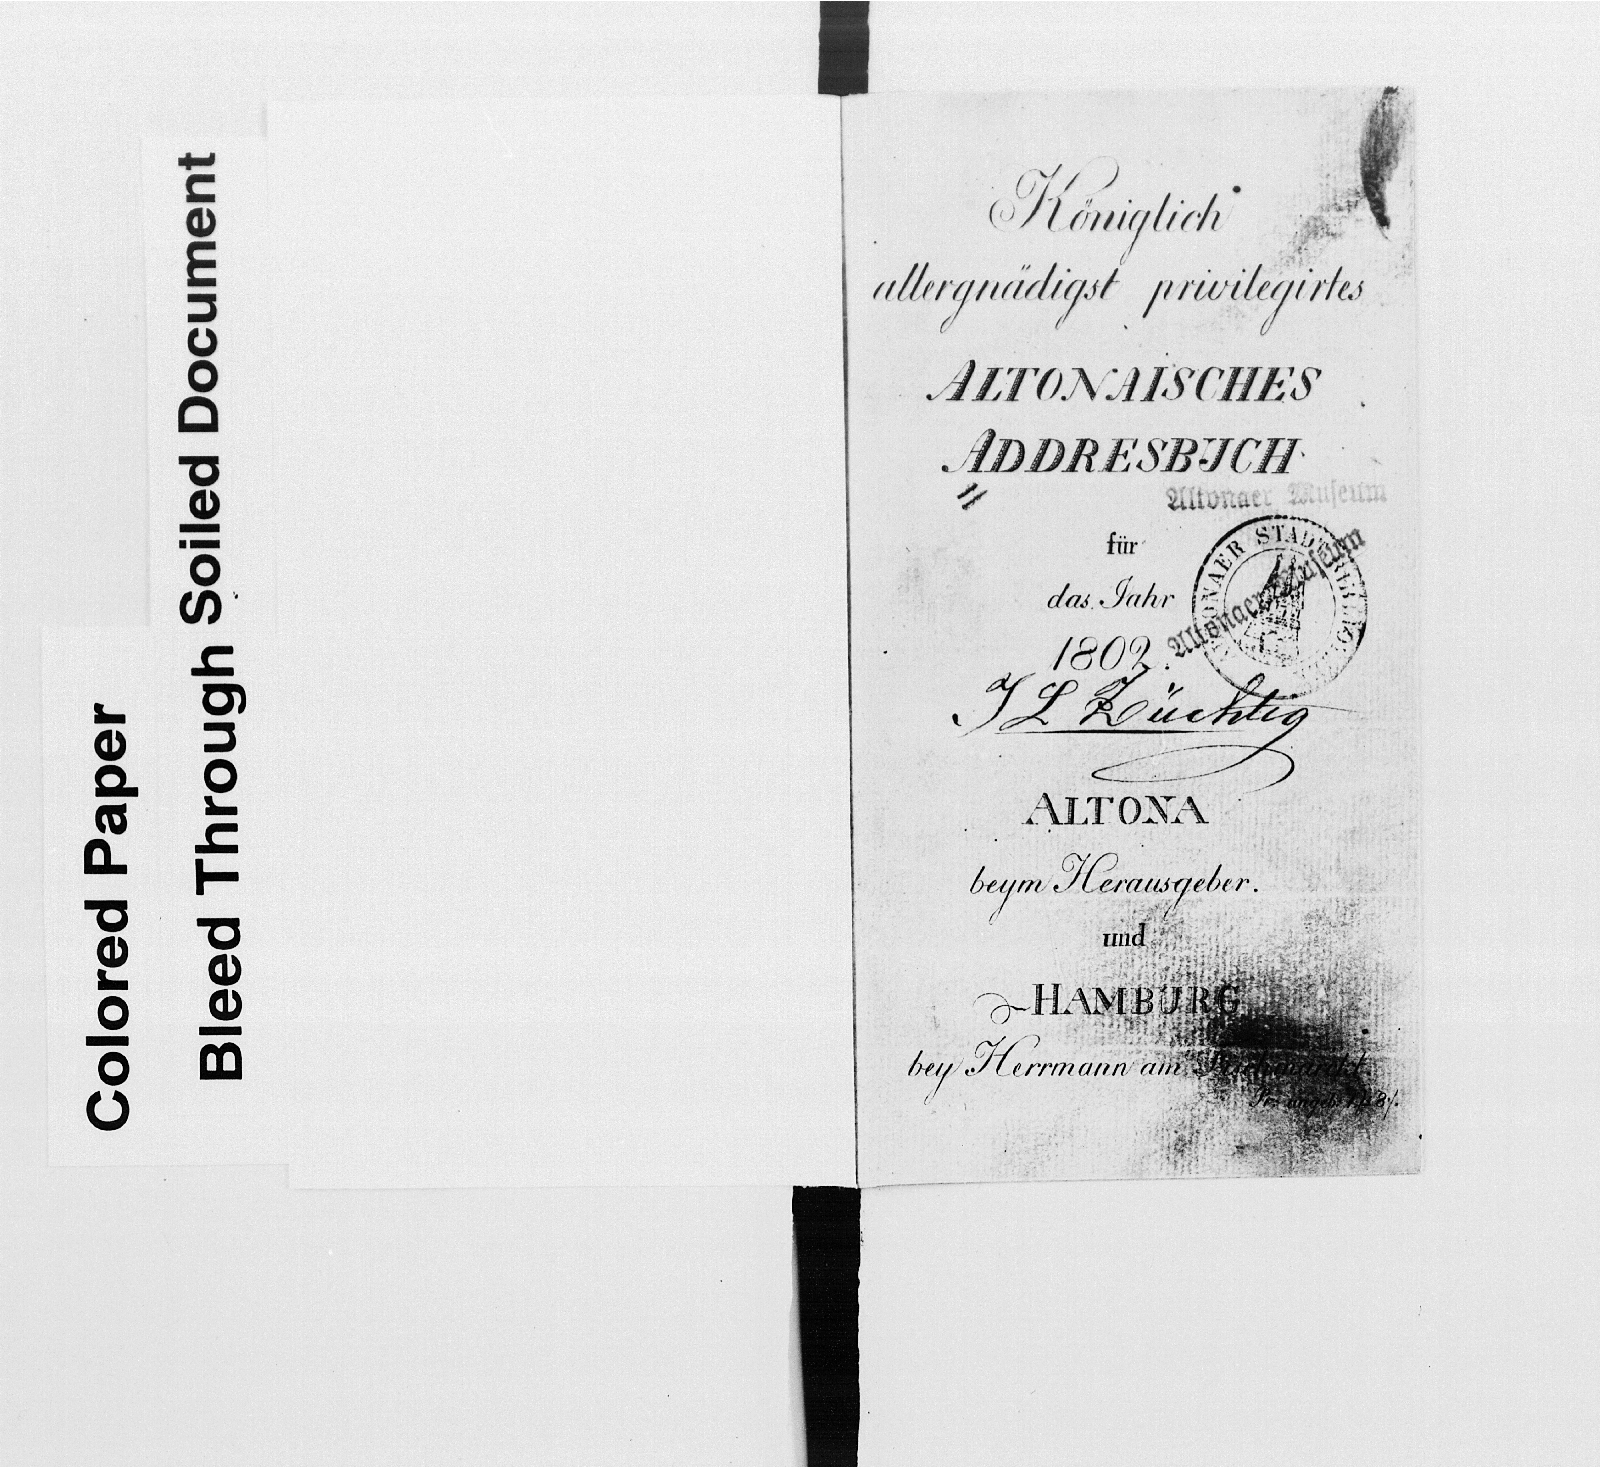 Colored Paper
Bleed Through
Soiled Document
Königlich
allergnädigst privilegirtes
ALTONAISCHES
ADDRESBUCH
Altonaer Museum
für
das Jahr
1802.
ALTONAER STADT
Altonaer Museum
J L Züchtig
ALTONA
beym Herausgeber.
und
HAMBURG
bey Herrmann am Fischmarckt